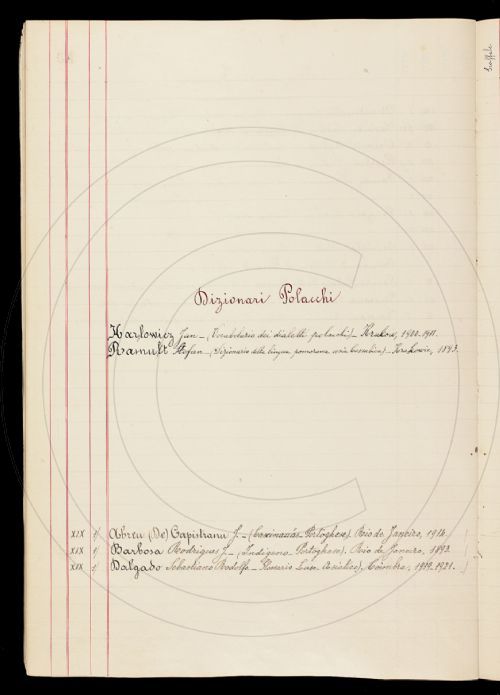 Scaffale
Dizionari Polacchi
Karlowicz Jan _ (Vocabolario dei dialetti polacchi) _ Krakow, 1900-1911.
Ramułt Stefan _ (Dizionario della lingua pomorana, ossia Casciubica) _ Krakowie, 1893.
XIX 1/ Abreu (De) Capistranu J. _ (Caxinauás-Portoghese). Rio de Janeiro, 1914.
XIX 1/ Barbosa Rodrigues J. _ (Indigeno-Portoghese). Rio de Janeiro, 1892.
XIX 1/ Dalgado Sebastiano Rodolfo _ Glossario Luso-Asiatico), Coimbra, 1919-1921.